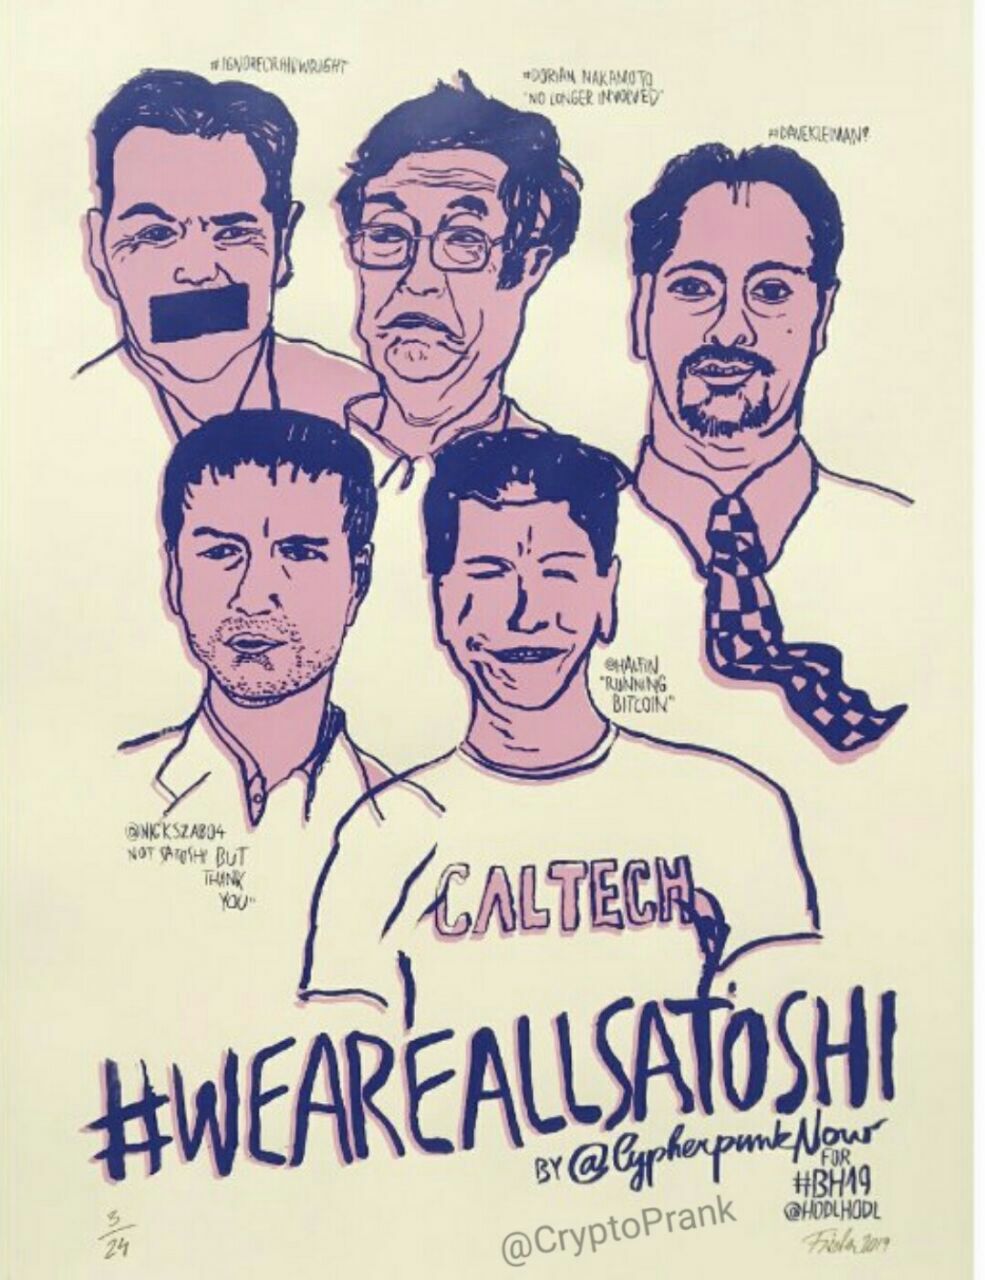 #IGNORECRAIGWRIGHT
#DORIAN NAKAMOTO
"NO LONGER INVOLVED"
#DAVEKLEIMAN?
@HALFIN
"RUNNING
BITCOIN"
@NICKSZABO4
NOT SATOSHI BUT
THANK
YOU"
CALTECH
#WEAREALLSATOSHI
BY @CypherpunkNow
FOR
#BH19
@HODLHODL
3/24
2019
@CryptoPrank